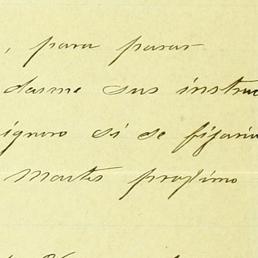 , para pasar
darme sus instruc
ignoro si se fijaria
Martes proximo